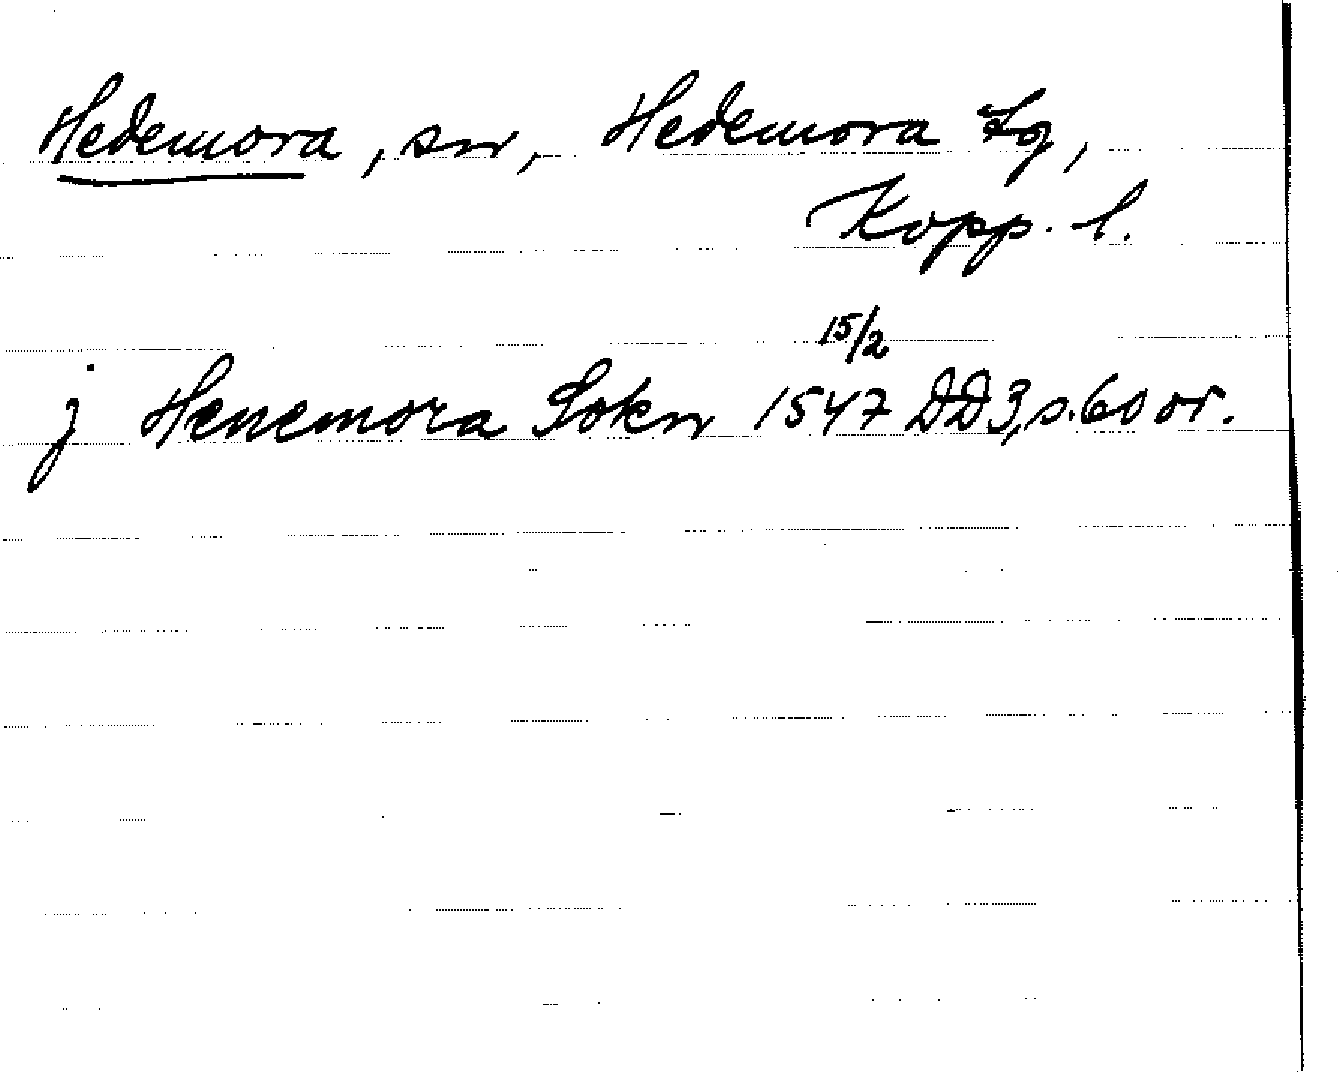 Hedemora, sn, Hedemora tg,
Kopp. l.
j Henemora Sokn 15/2 1547 DD3, s. 60 or.